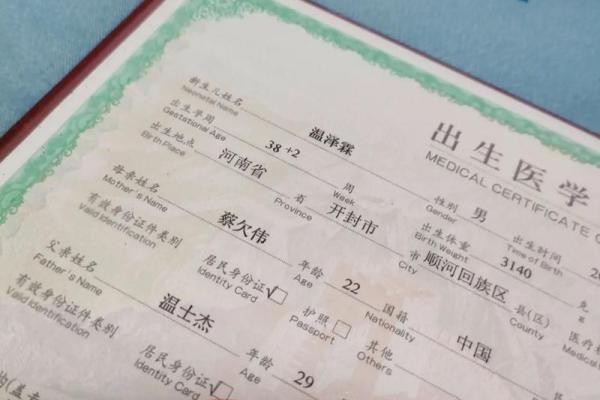 出生医学
MEDICAL CERTIFICATE
新生儿姓名 温泽霖 性别 男 出生时间
Neonatal Name Gender Time of Birth
出生孕周 38+2 周 出生体重 3140 克
Gestational Age Week Birth Weight g
出生地点 河南省 省 开封市 市 顺河回族区 县(区)
Birth Place Province City County
母亲姓名 蔡欠伟 年龄 22 国籍 中国
Mother's Name Age Nationality
有效身份证件类别 居民身份证 护照 其他
Valid Identification Identity Card Passport Others
父亲姓名 温士杰 年龄 29
Father's Name Age
有效身份证件类别 居民身份证
Valid Identification Identity Card